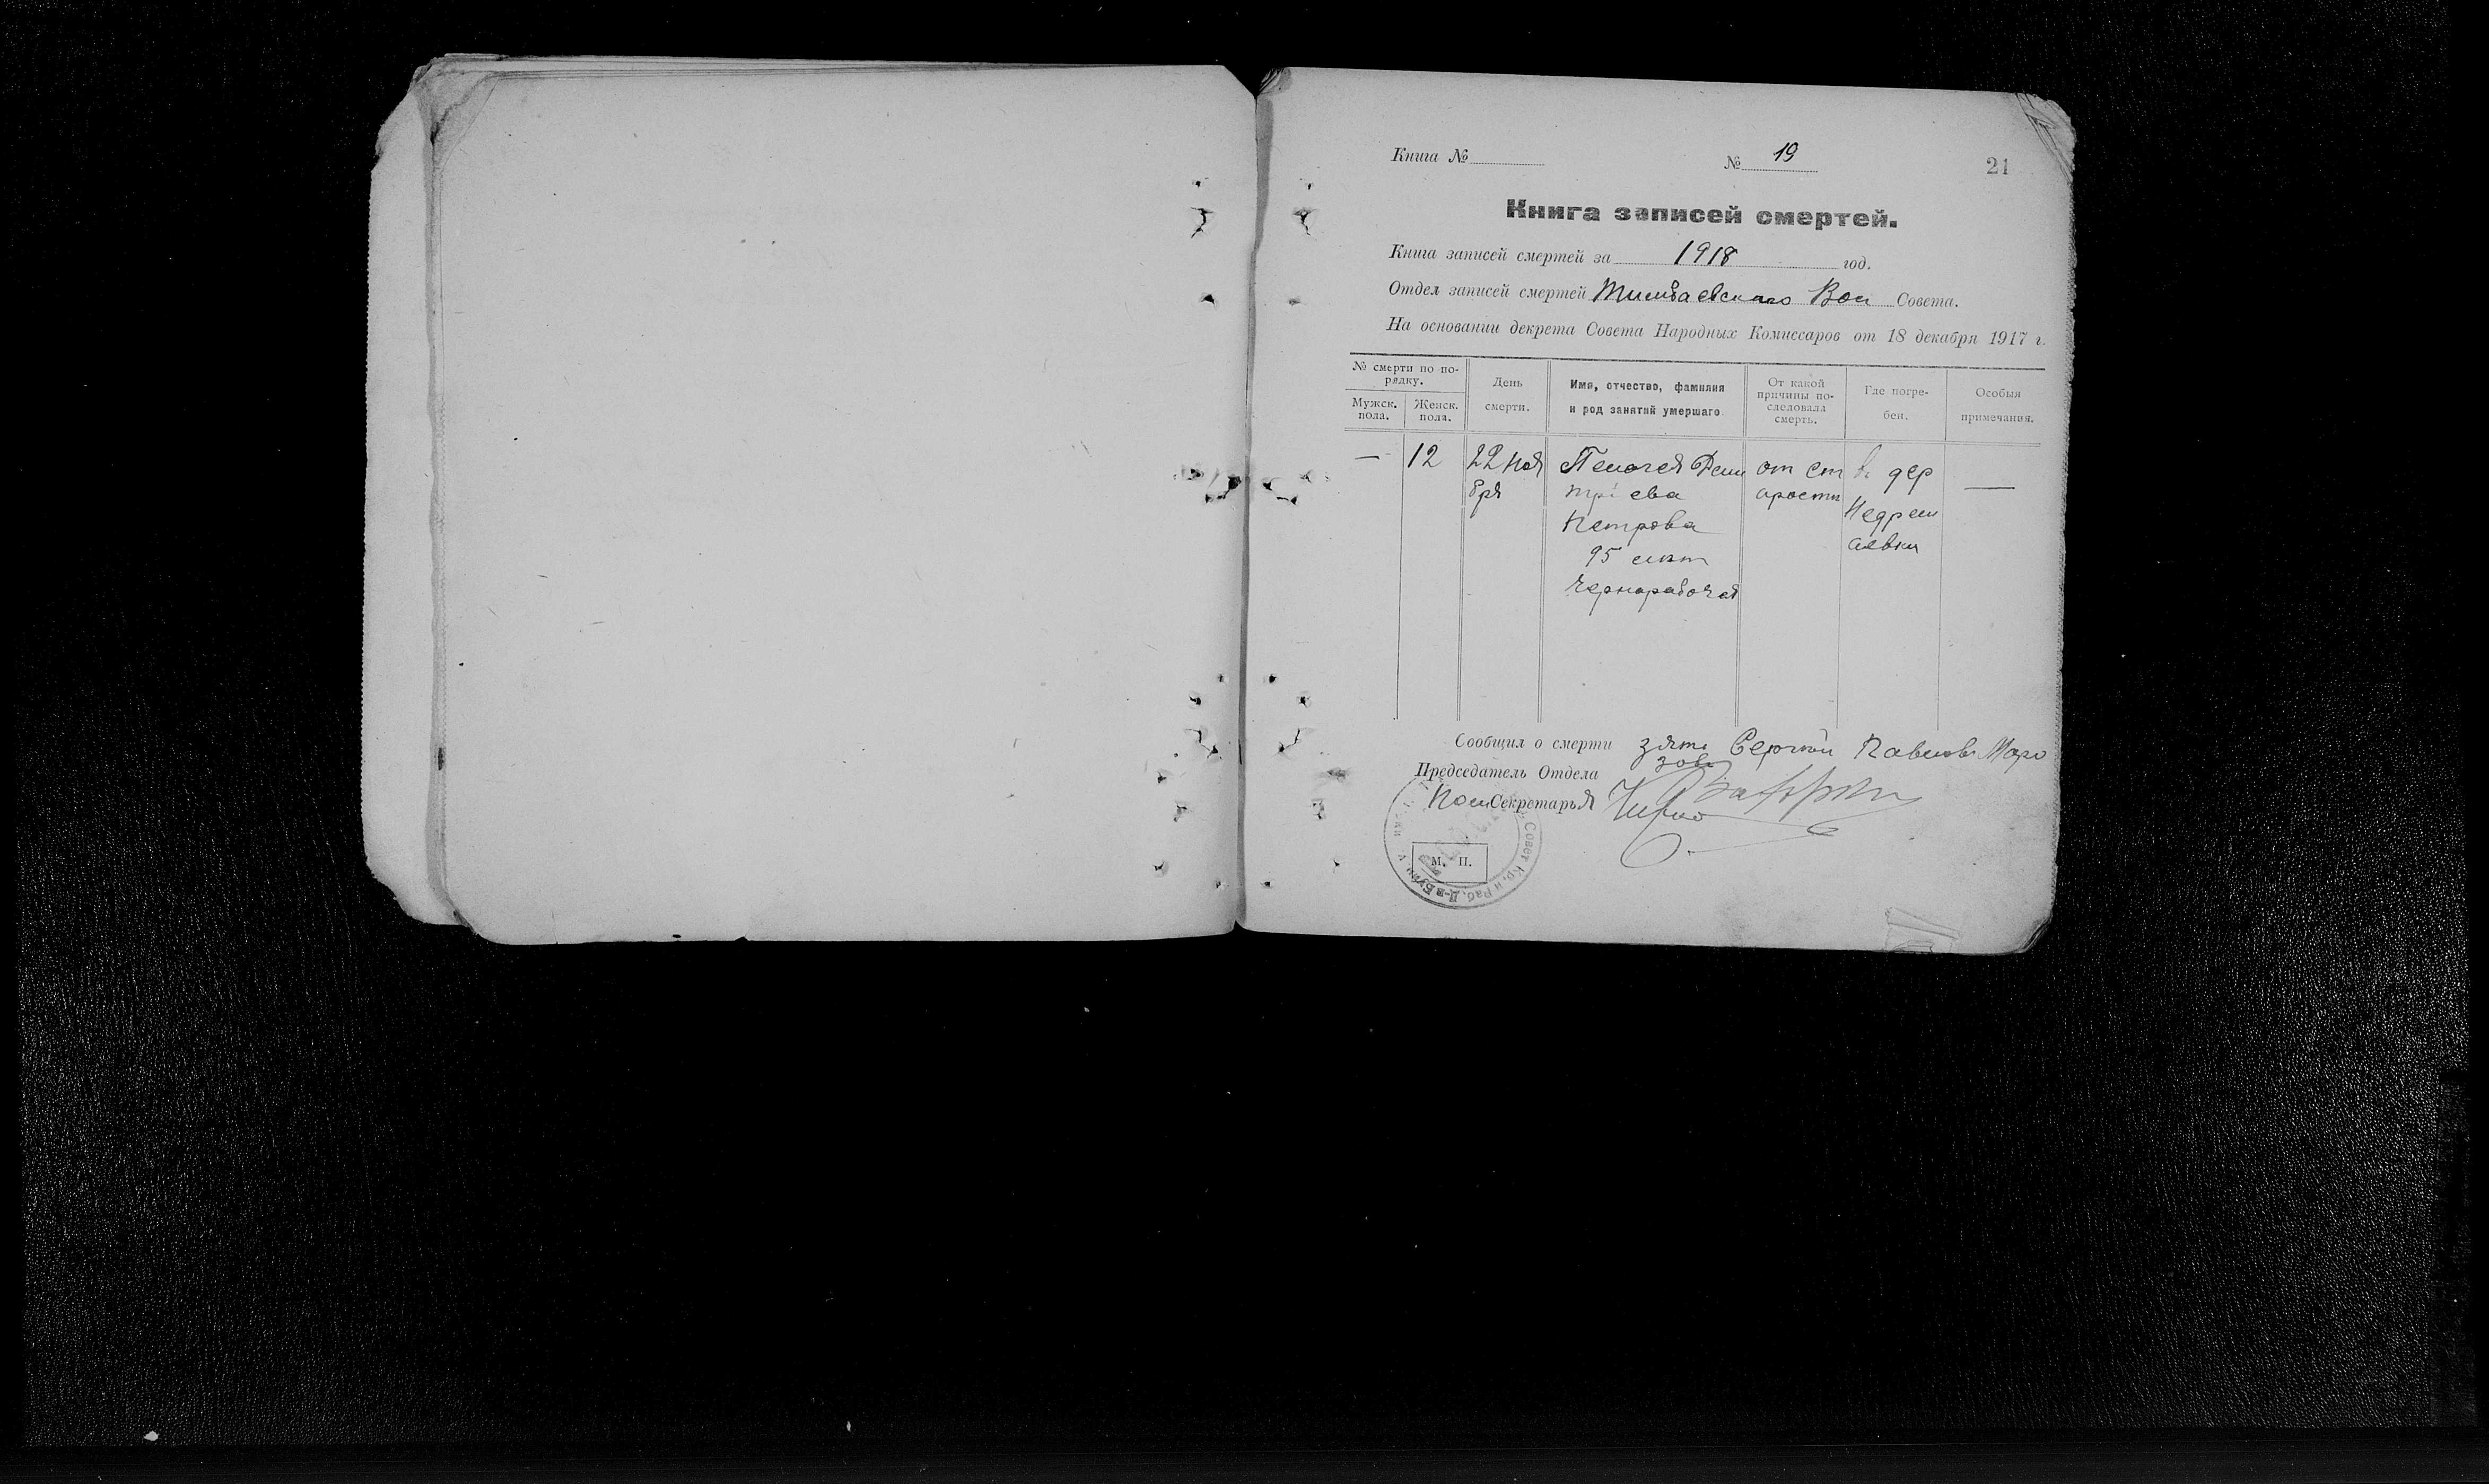 Книга №
№ 19
21
Книга записей смертей.
Книга записей смертей за 1918 год.
Отдел записей смертей Вол Совета.
На основании декрета Совета Народных Комиссаров от 18 декабря 1917 г.
№ смерти по по-
рядку.
Мужск.
пола.
Женск.
пола.
День
смерти.
Имя, отчество, фамилия
и род занятий умершаго
От какой
причины по-
следовала
смерть.
Где погре-
бен.
Особыя
примечания.
—
12
22 ноя
бря
Пелагея Дми
тріева
Петрова
95 лет
Чернорабочая
от ст
арости
в дер
—
Сообщил о смерти зять Сергей Павлов Маро
зовъ
Председатель Отдела
Пом Секретаря
М. П.
Совет Кр. и Раб. Д-в